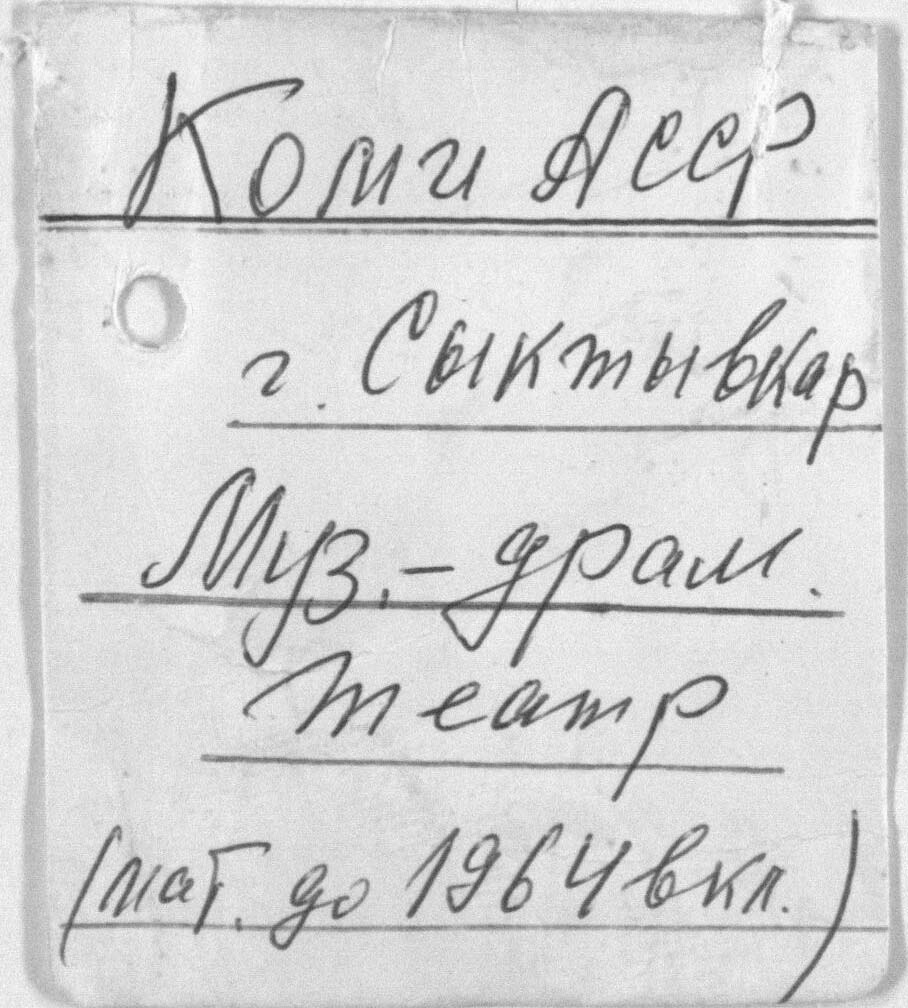 Коми АССР
г. Сыктывкар
Муз.-драм.
театр
(мат. до 1964 вкл.)